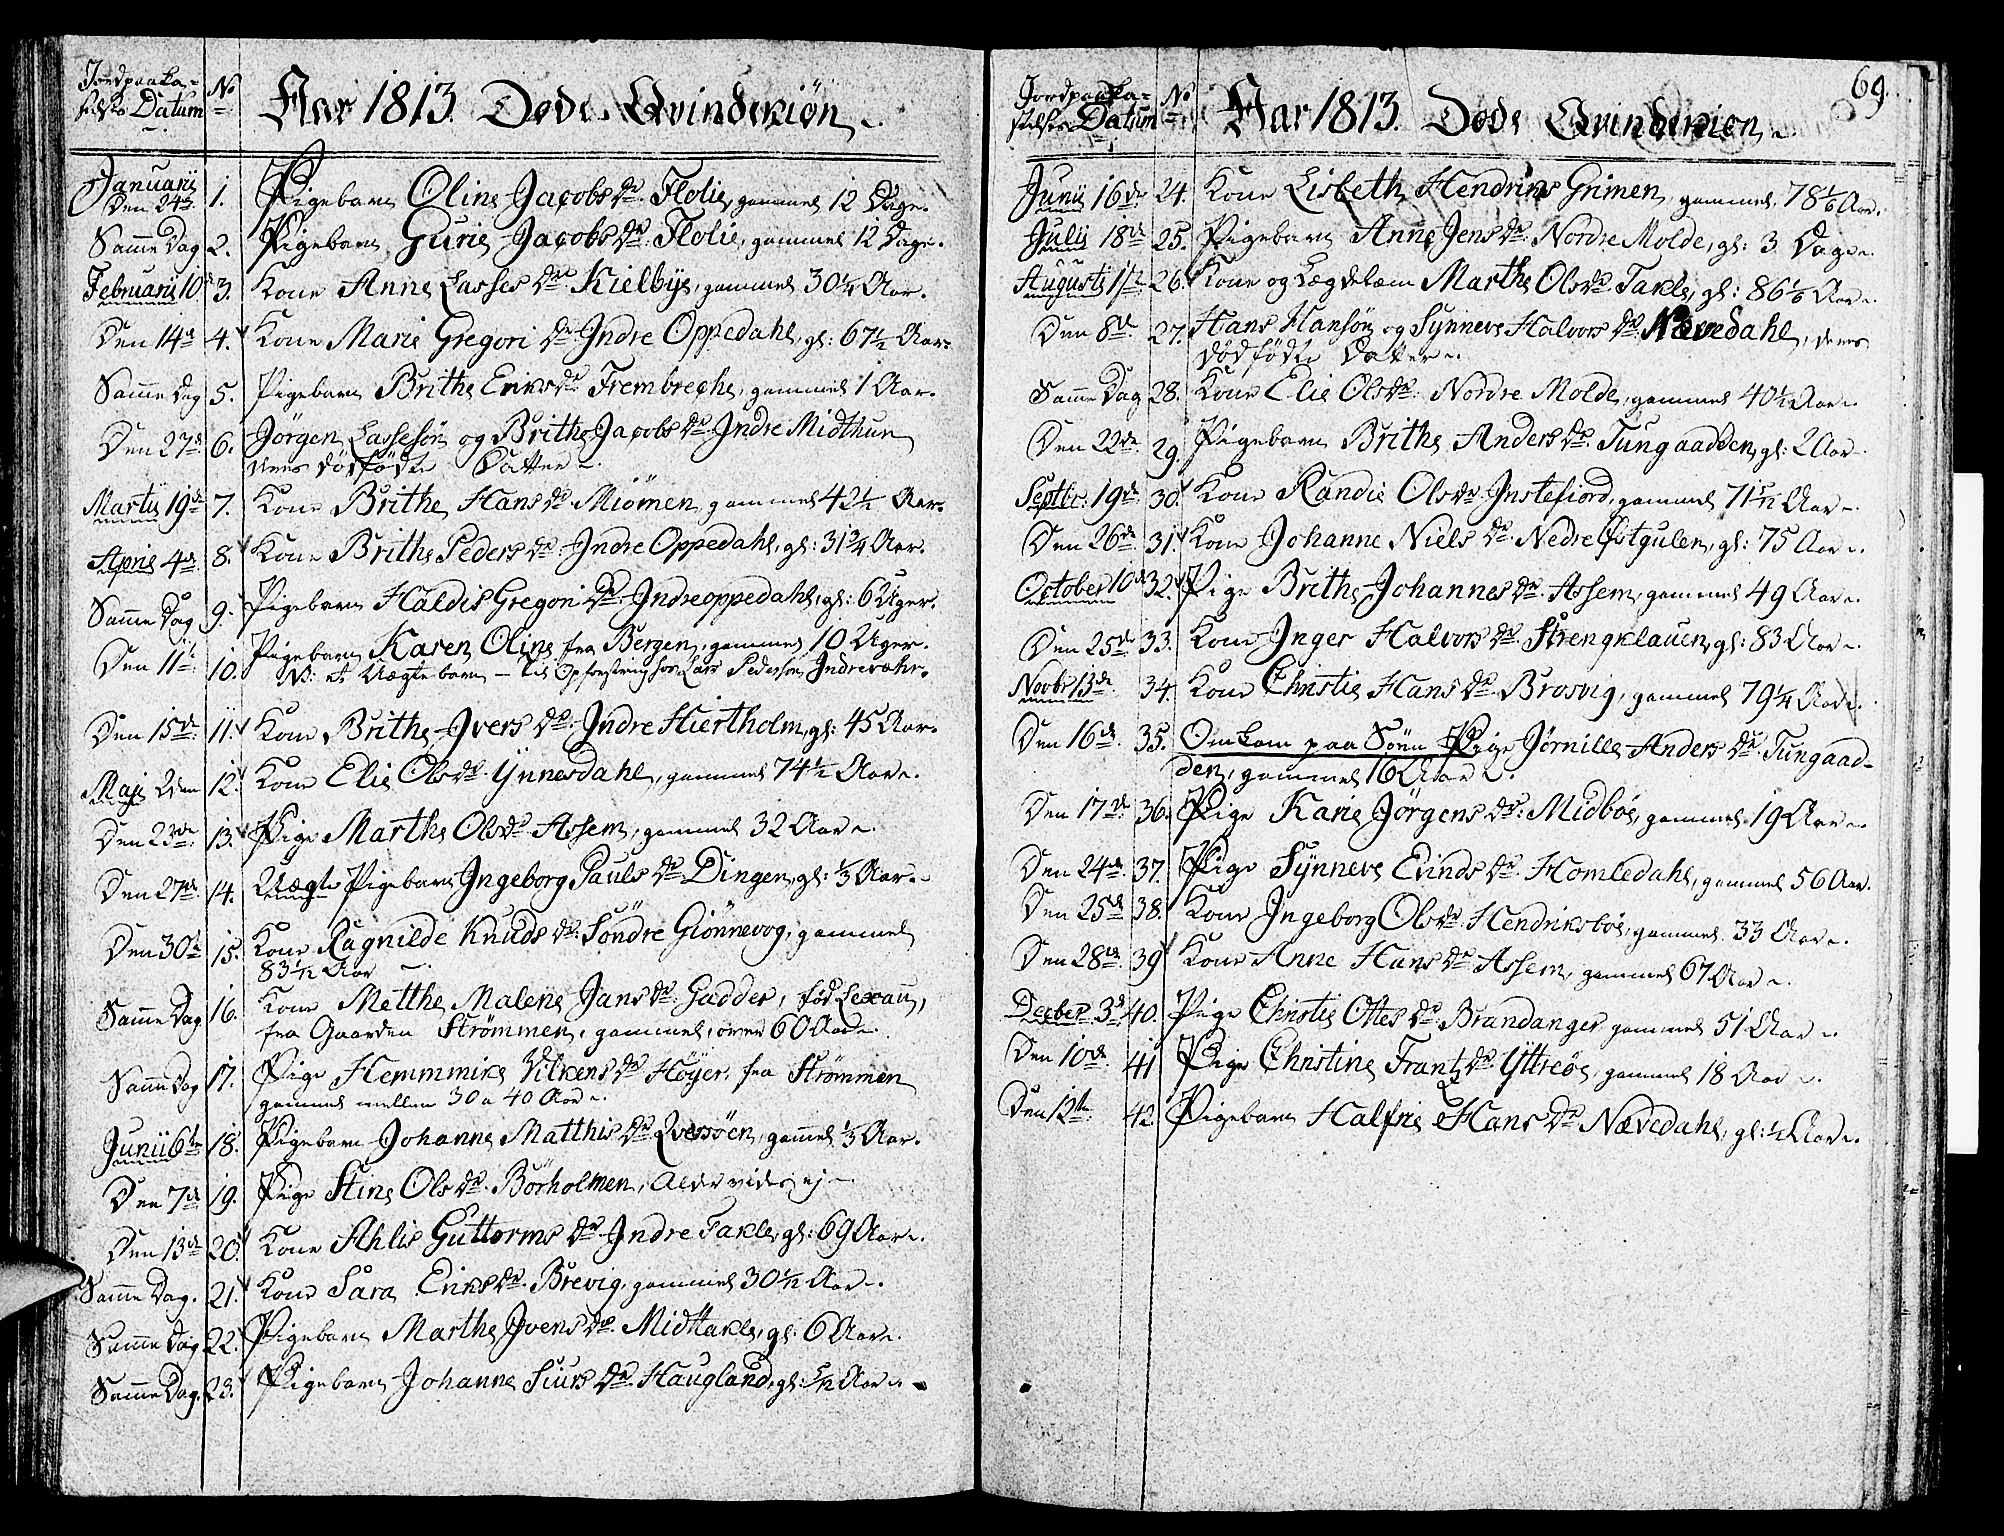 Jordpaaka-
stelses Datum No
Aar 1813. Døde Qvindekiøn
Januarii
Den 24de 1. Pigebarn Oline Jacobsdr. Flolie, gammel 12 Dage.
Samme Dag 2. Pigebarn Gurie Jacobsdr. Flolie, gammel 12 Dage.
Februarii 10d 3. Kone Anne Lassesdtr Kielbye, gammel 30 1/4 Aar.
Den 14de 4. Kone Marie Gregoridr Indre Oppedahl, gl: 67 1/2 Aar.
Samme Dag 5. Pigebarn Brithe Eriksdr. Frembreche, gammel 1 Aar.
Den 27de 6. Jörgen Lassesön og Brithe Jacobsdr. Indre Midthun
deres dødfødte Datter
Martii 19de 7. Kone Brithe Hansdr. Miömen, gammel 42 1/2 Aar.
April 4de 8. Kone Brithe Pedersdr. Indre Oppedahl, gl: 31 3/4 Aar.
Samme Dag 9. Pigebarn Haldis Gregoridr. Indreoppedahl, gl: 6 Uger.
Den 11te 10. Pigebarn Karen Oline fra Bergen, gammel 10 Uger.
NB: et Uægte barn - til Opfostring hos Lars Pedersen Indrevæhr.
Den 15de 11. Kone Brithe Iversdr. Indre Hiertholm, gl: 45 Aar.
Maji 2den 12. Kone Elie Olsdr. Ynnesdahl, gammel 74 1/2 Aar.
Den 23de 13. Pige Marthe Olsdr. Assem, gammel 32 Aar.
Den 27de 14. Uægte Pigebarn Ingeborg Paulsdr. Dingen, gl: 1/3 Aar.
Den 30te 15. Kone Ragnilde Knudsdr. Söndre Giönnevog, gammel
83 1/12 Aar
Samme Dag 16. Kone Metthe Malene Jansdr. Gadder, fød Lexau,
fra Gaarden Strömmen, gammel, over 60 Aar.
Samme Dag 17. Pige Hemmmike Vilkensdr. Höyer, fra Strömmen
gammel mellem 30 a 40 Aar.
Junii 6te 18. Pigebarn Johanne Matthisdr. Qversöen, gammel 1/3 Aar.
Den 7de 19. Pige Stine Olsdr. Börholmen, Alder vides ej
Den 13de 20. Kone Ahlis Guttormsdr. Indre Takle, gl: 69 Aar.
Samme Dag. 21. Kone Sara Eriksdr. Brevig, gammel 30 1/12 Aar.
Samme Dag 22. Pigebarn Marthe Ivensdr. Midttakle, gl: 6 Aar.
Samme Dag. 23. Pigebarn Johanne Siursdr. Haugland, gl: 5/12 Aar.
69.
Jordpaaka-
stelses Datum No
Aar 1813. Døde Qvindekiøn
Junii 16de 24. Kone Lisbeth Hendriks Grimen, gammel 78 1/6 Aar.
Julii 18de 25. Pigebarn Anne Jensdr. Nordre Molde, gl: 3 Dage.
Augusti 1ste 26. Kone og Lægdelem Marthe Olsdr. Takle, gl: 86 1/6 Aar.
Den 8de 27. Hans Hansön og Synneve Halvorsdr. Nævedahl, deres
dødfødte Datter.
Samme Dag 28. Kone Elie Olsdr. Nordre Molde, gammel 40 1/2 Aar.
Den 22de 29. Pigebarn Brithe Andersdr. Tungaadden, gl: 2 Aar.
Septbr. 19de 30. Kone Randie Olsdr. Instefiord, gammel 71 5/12 Aar.
Den 26de 31. Kone Johanne Nielsdr. Nedre Østgulen, gl: 75 Aar.
October 10de 32. Pige Brithe Johannesdr. Assem, gammel 49 Aar.
Den 25de 33. Kone Inger Halvorsdr. Strengklauen, gl: 83 Aar.
Novbr 13de 34. Kone Christie Hansdr. Brosvig, gammel 79 1/4 Aar.
Den 16de 35. Omkom paa Søen Pige Jørnille Andersdr. Tungaad-
den, gammel 16 Aar.
Den 17de 36. Pige Karie Jörgensdr. Midböe, gammel 19 Aar.
Den 24de 37. Pige Synneve Evindsdr. Homledahl, gammel 56 Aar.
Den 25de 38. Kone Ingeborg Olsdr. Hendriksböe, gammel 33 Aar.
Den 28de 39 Kone Anne Hansdr. Assem, gammel 67 Aar.
Decber. 3de 40. Pige Christie Ottesdr. Brandanger gammel 51 Aar.
Den 10de 41 Pige Christine Frantzdr. Yttreöe, gammel 18 Aar.
Den 12te 42. Pigebarn Halfrie Hansdr. Nævedahl, gl: 1/2 Aar.